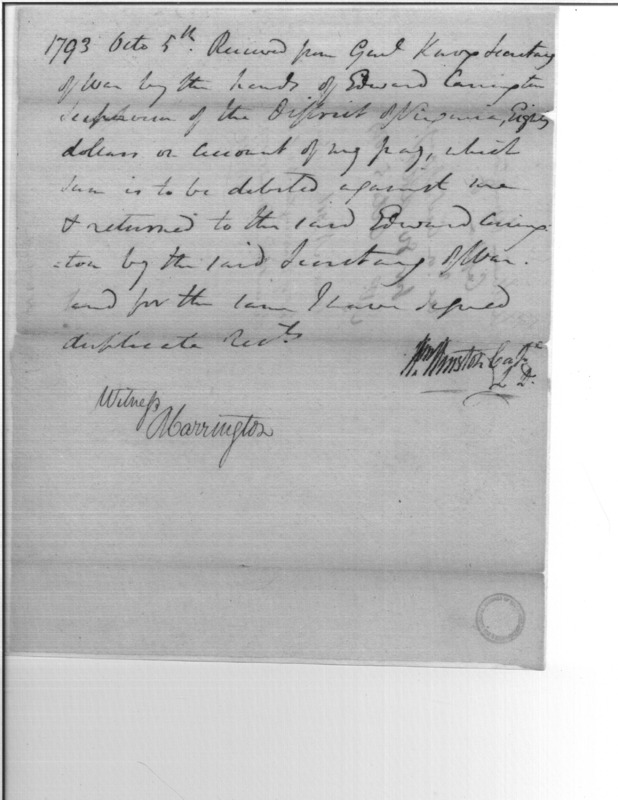 1793 Octo 5th. Received from Genl Knox Secretary
of War by the hands of Edward Carrington
Supervisor of the District of Virginia, Eighty
dollars on account of my pay, which
sum is to be debited against me
& returned to the said Edward Carring-
-ton by the said Secretary of War.
and for the same I have signed
duplicate rects
Wm Winston Capt
L D.
Witness
Carrington